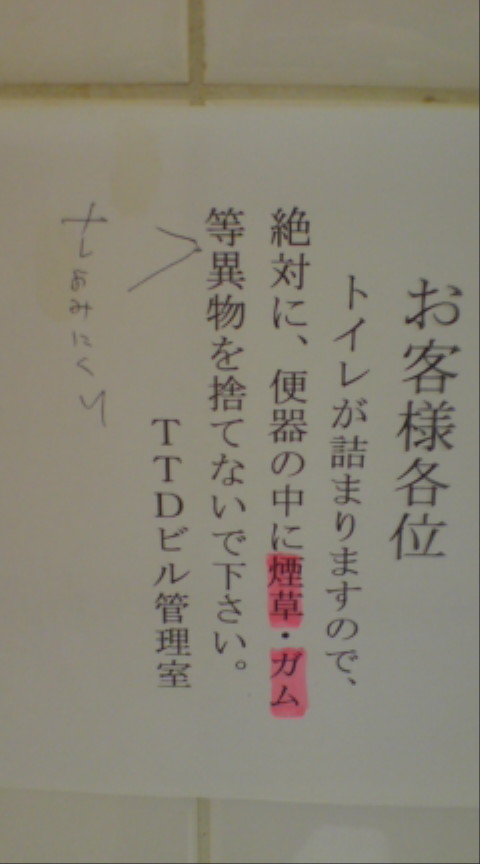 お客様各位
トイレが詰まりますので、
絶対に、便器の中に煙草・ガム
等異物を捨てないで下さい。
TTDビル管理室